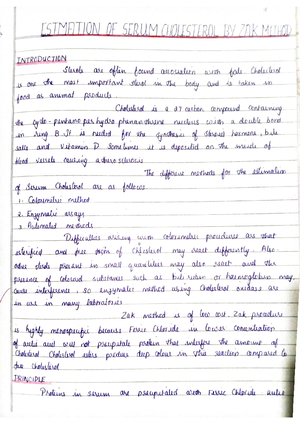 ESTIMATION OF SERUM CHOLESTEROL BY ZAK METHOD
INTRODUCTION
Sterols are often found association with fats. Cholesterol
is one the most important sterol in the body and is taken as
food as animal products.
Cholesterol is a 27 carbon compound containing
the cyclo-pentano per hydro phenanthrene nucleus with a double bond
in ring B. It is needed for the synthesis of steroid hormones, bile
salts and vitamin D. Sometimes it is deposited on the inside of
blood vessels causing atherosclerosis
The different methods for the estimation
of Serum Cholesterol are as follows
1. Colorimetric method
2. Enzymatic assays
3. Automated methods
Difficulties arising with colorimetric procedures are that
esterified and free forms of cholesterol may react differently. Also
other sterols present in small quantities may also react and the
presence of colored substances such as bilirubin or haemoglobin may
cause interference. SO enzymatic method using Cholesterol oxidases are
in use in many laboratories
Zak method is of low cost. Zak procedure
is highly nonspecific because Ferric Chloride in lower concentration
of and will not precipitate protein that interfere the amount of
Cholesterol. Cholesterol esters produce deep colour in this reaction compared to
free cholesterol
PRINCIPLE
Proteins in serum are precipitated with Ferric Chloride